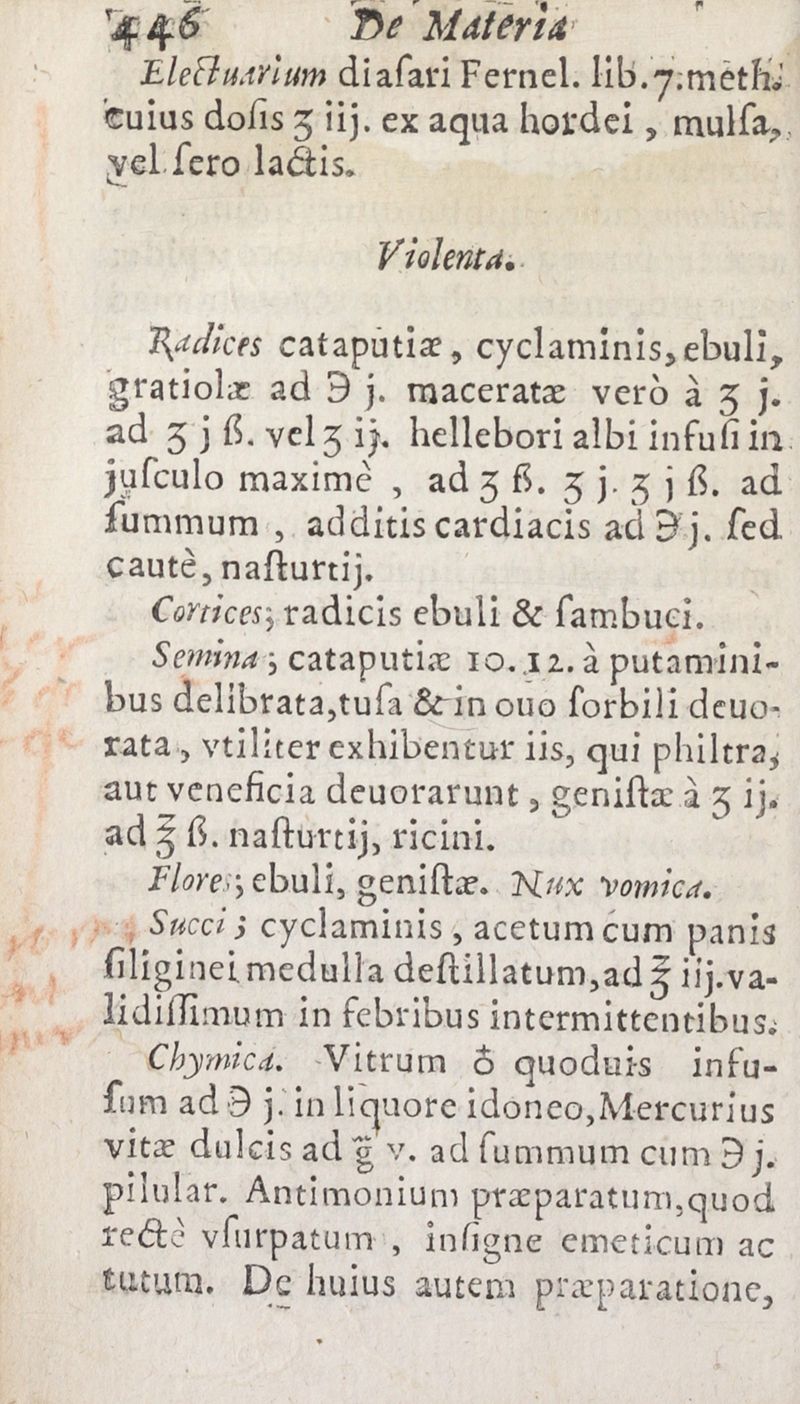 446 De Materia
Electuarium diaſari Fernel. lib. 7. meth.
cuius doſis ʒ iij. ex aqua hordei, mulſa,
vel ſero lactis.
Violenta.
Radices cataputiæ, cyclaminis, ebuli,
gratiolæ ad ℈ j. maceratæ verò à ʒ j.
ad ʒ j ß. vel ʒ ij. hellebori albi infuſi in
juſculo maximè , ad ʒ ß. ʒ j. ʒ j ß. ad
ſummum , additis cardiacis ad ℈ j. ſed
cautè, naſturtij.
Cortices; radicis ebuli & ſambuci.
Semina ; cataputiæ 10. 12. à putamini-
bus delibrata, tuſa & in ouo ſorbili deuo-
rata, vtiliter exhibentur iis, qui philtra,
aut veneficia deuorarunt , geniſtæ à ʒ ij.
ad ℥ ß. naſturtij, ricini.
Flores; ebuli, geniſtæ. Nux vomica.
Succi ; cyclaminis , acetum cum panis
ſiliginei medulla deſtillatum, ad ℥ iij. va-
lidiſſimum in febribus intermittentibus.
Chymica. Vitrum ♁ quoduis infu-
ſum ad ℈ j. in liquore idoneo, Mercurius
vitæ dulcis ad g̃ v. ad ſummum cum ℈ j.
pilular. Antimonium præparatum, quod
rectè vſurpatum , inſigne emeticum ac
tutum. De huius autem præparatione,